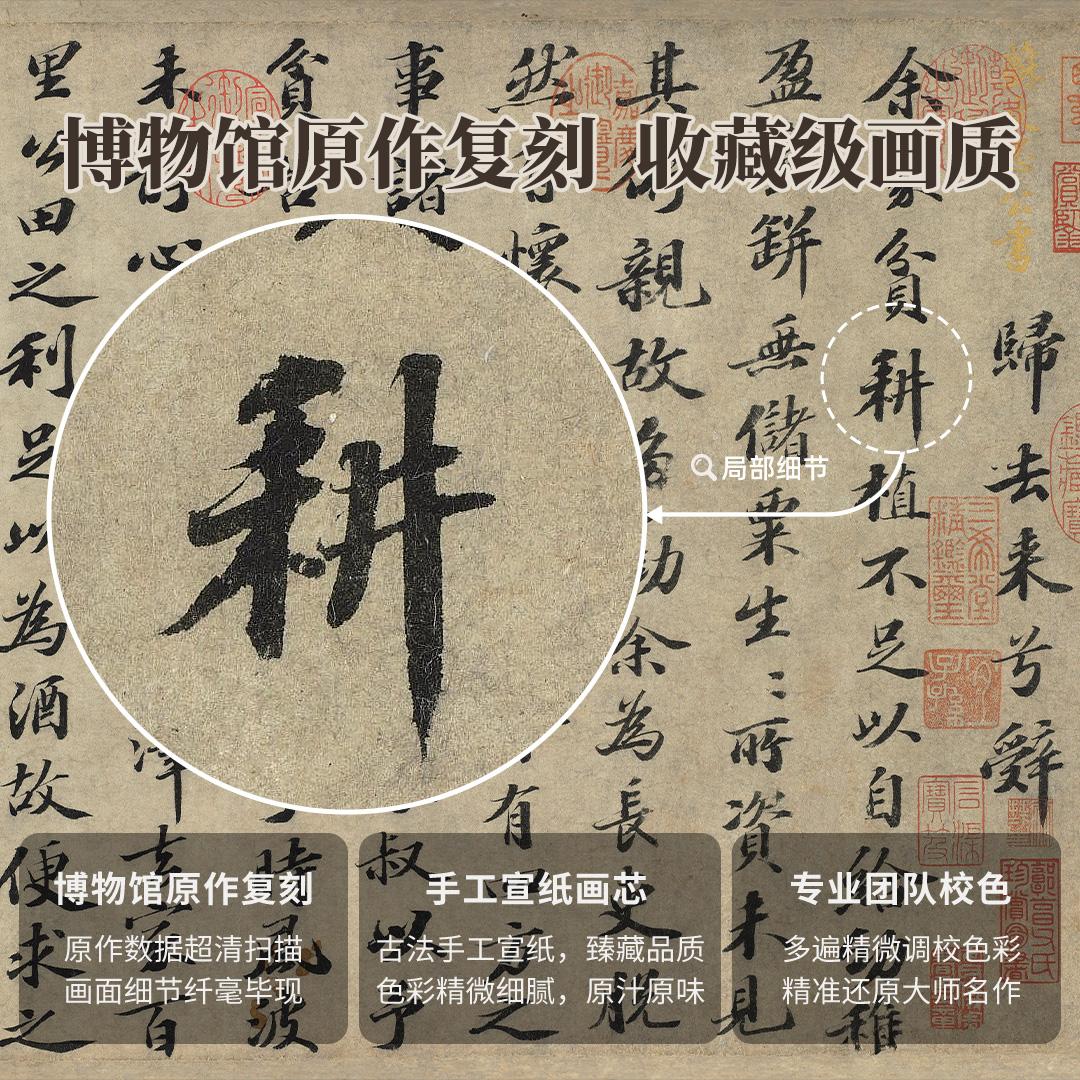 博物馆原作复刻 收藏级画质
局部细节
耕
歸去来兮辤
余家貧耕植不足以自給幼稚
盈 缾無儲粟生〻所資未見
其 親故 勸余為長吏脫
然 懷 有 之
事諸 叔以予
貧 時風波
未 心 家百
里公田之利足以為酒故便求之
三希堂精鑑璽
博物馆原作复刻
原作数据超清扫描
画面细节纤毫毕现
手工宣纸画芯
古法手工宣纸，臻藏品质
色彩精微细腻，原汁原味
专业团队校色
多遍精微调校色彩
精准还原大师名作